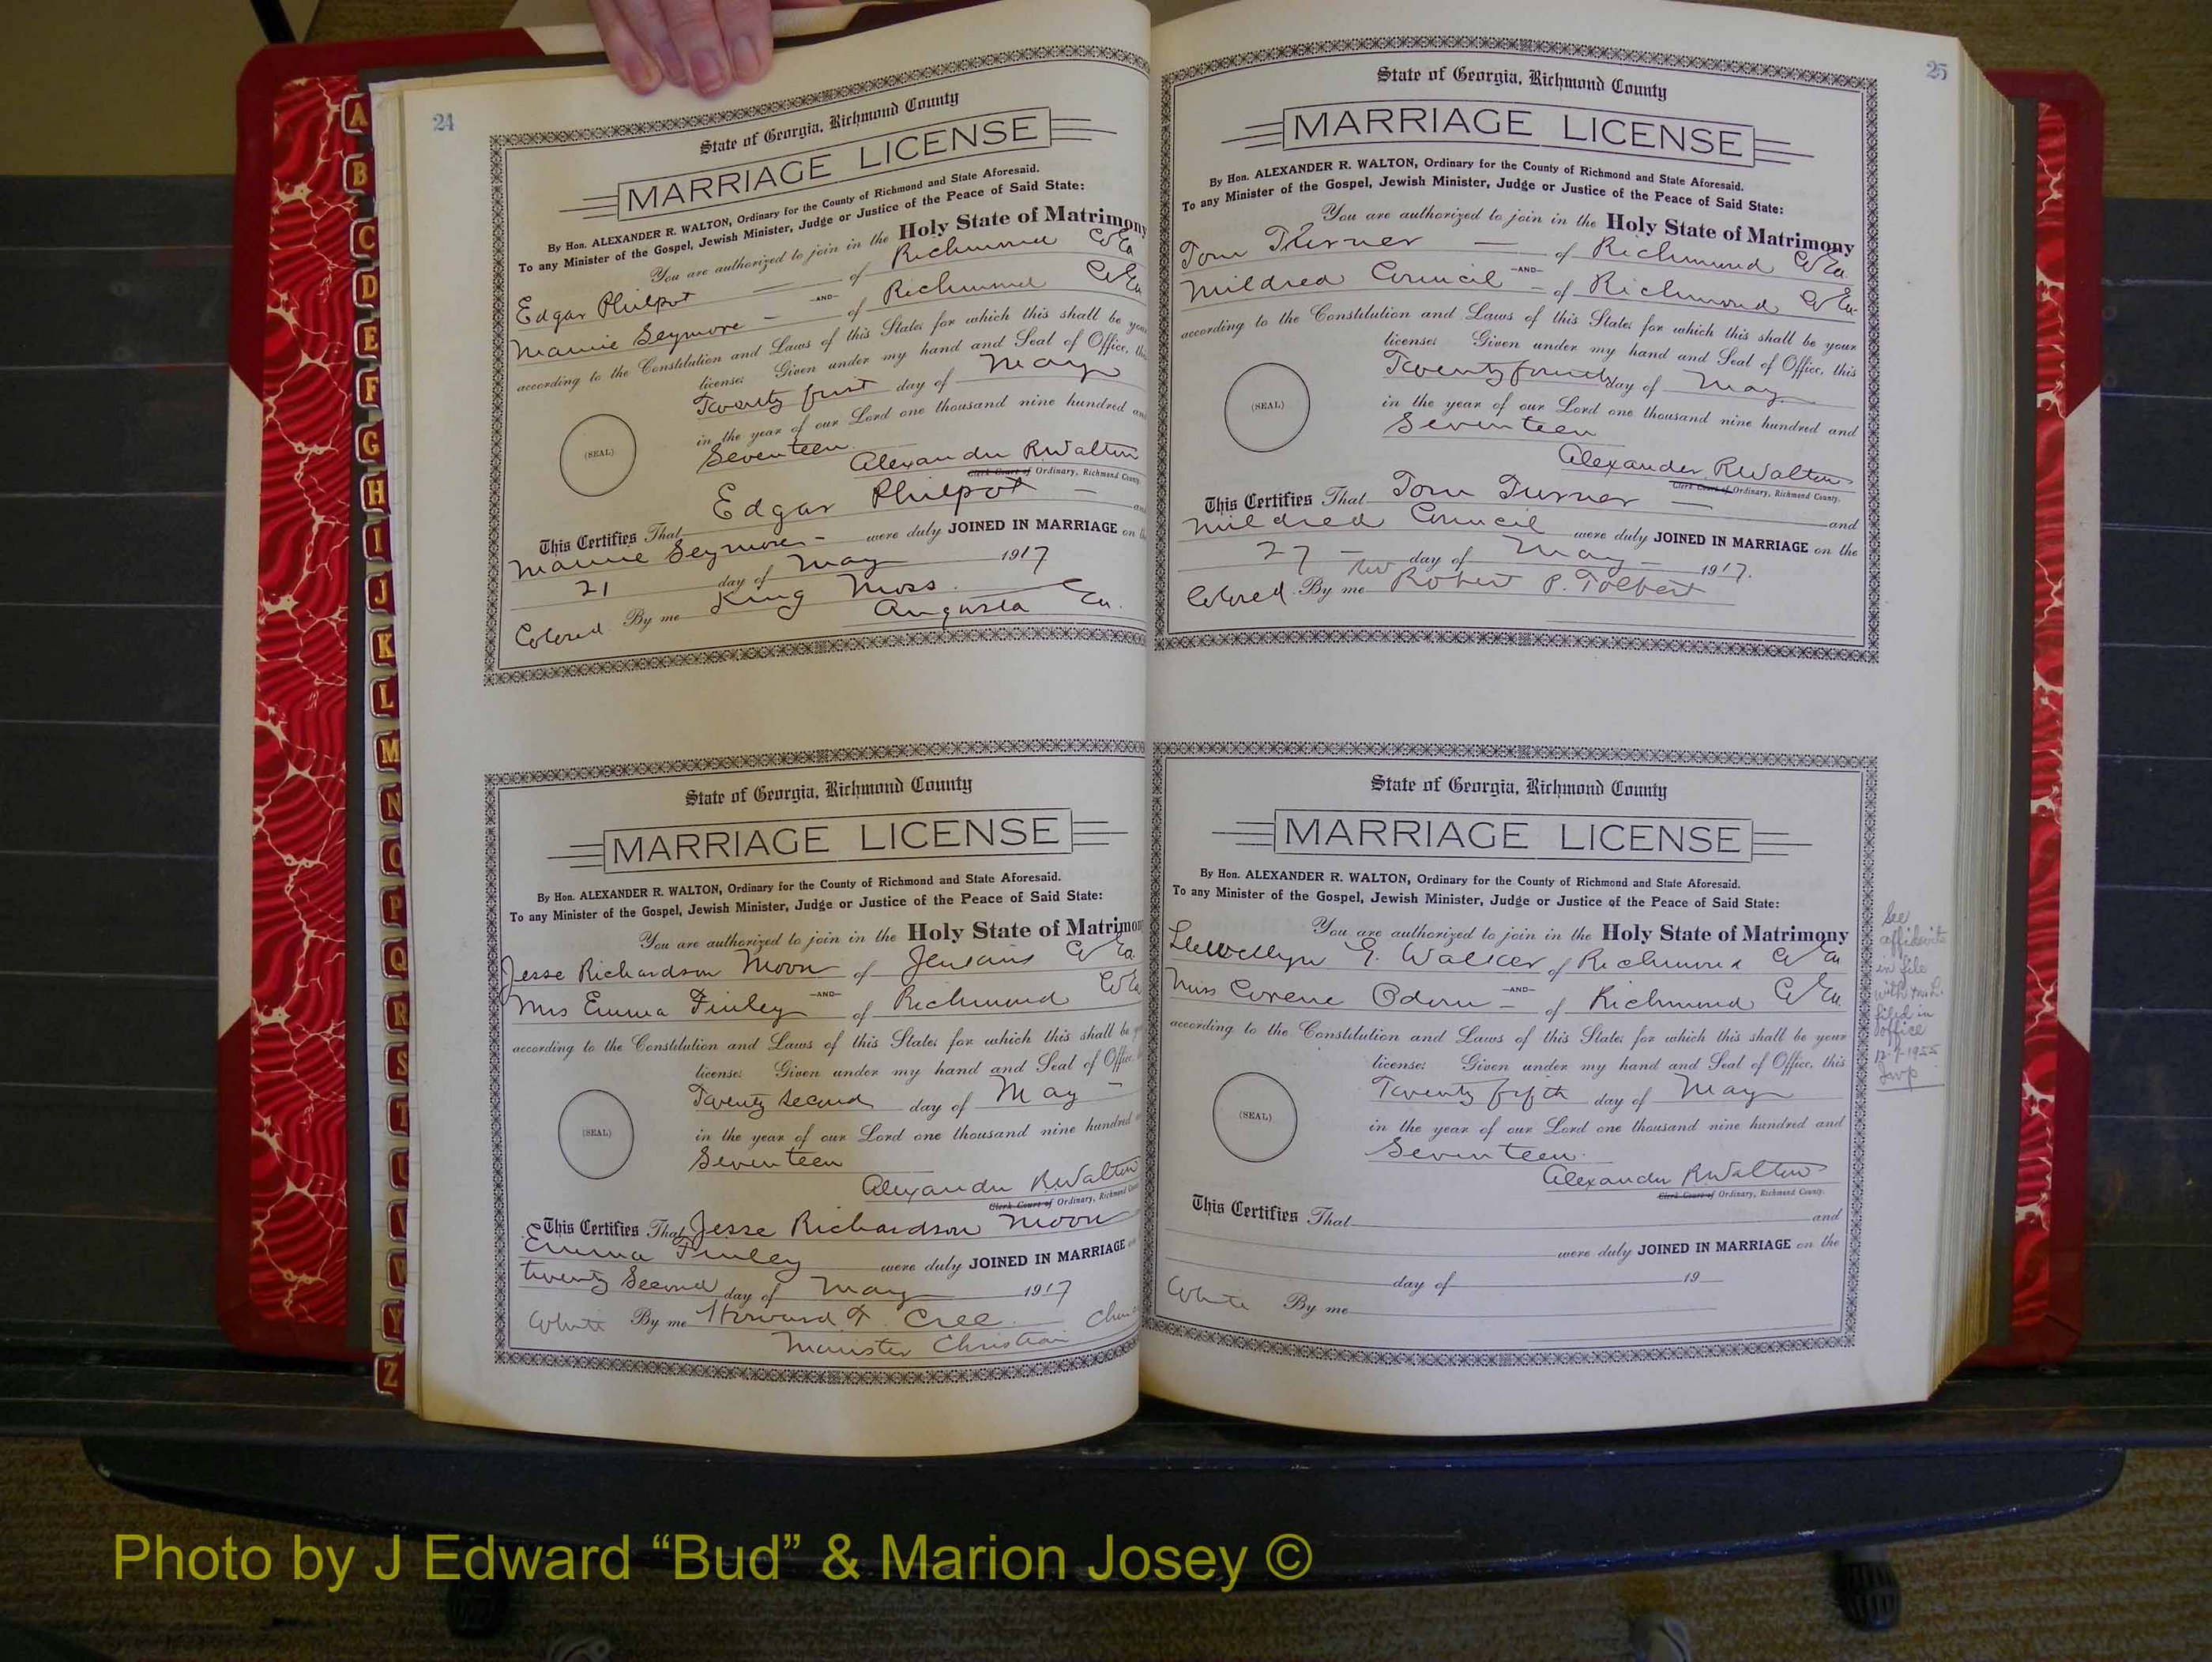 24
State of Georgia, Richmond County
MARRIAGE LICENSE
By Hon. ALEXANDER R. WALTON, Ordinary for the County of Richmond and State Aforesaid.
To any Minister of the Gospel, Jewish Minister, Judge or Justice of the Peace of Said State:
You are authorized to join in the Holy State of Matrimony
Edgar Philpot of Richmond Co Ga
—AND—
Mamie Seymore of Richmond Co Ga
according to the Constitution and Laws of this State; for which this shall be your
license: Given under my hand and Seal of Office, this
Twenty first day of May
in the year of our Lord one thousand nine hundred and
Seventeen
(SEAL)
Alexander R Walton
Clerk Court of Ordinary, Richmond County.
This Certifies That Edgar Philpot and
Mamie Seymore were duly JOINED IN MARRIAGE on the
21 day of May 1917
Colored By me King Moss
Augusta Ga.
State of Georgia, Richmond County
MARRIAGE LICENSE
By Hon. ALEXANDER R. WALTON, Ordinary for the County of Richmond and State Aforesaid.
To any Minister of the Gospel, Jewish Minister, Judge or Justice of the Peace of Said State:
You are authorized to join in the Holy State of Matrimony
Jesse Richardson Moon of Jenkins Co Ga
—AND—
Mrs Emma Finley of Richmond Co Ga
according to the Constitution and Laws of this State; for which this shall be
license: Given under my hand and Seal of Office,
Twenty Second day of May
in the year of our Lord one thousand nine hundred
Seventeen
(SEAL)
Alexander R Walton
Clerk Court of Ordinary, Richmond
This Certifies That Jesse Richardson Moon
Emma Finley were duly JOINED IN MARRIAGE
twenty Second day of May 1917
White By me Howard T. Cree
Minister Christian
25
State of Georgia, Richmond County
MARRIAGE LICENSE
By Hon. ALEXANDER R. WALTON, Ordinary for the County of Richmond and State Aforesaid.
To any Minister of the Gospel, Jewish Minister, Judge or Justice of the Peace of Said State:
You are authorized to join in the Holy State of Matrimony
Tom Turner of Richmond Co Ga.
—AND—
Mildred Council of Richmond Co Ga
according to the Constitution and Laws of this State; for which this shall be your
license: Given under my hand and Seal of Office, this
Twenty fourth day of May
in the year of our Lord one thousand nine hundred and
Seventeen
(SEAL)
Alexander R Walton
Clerk Court of Ordinary, Richmond County.
This Certifies That Tom Turner and
Mildred Council were duly JOINED IN MARRIAGE on the
27 day of May 1917.
Colored By me Rev Robert P. Tolbert
State of Georgia, Richmond County
MARRIAGE LICENSE
By Hon. ALEXANDER R. WALTON, Ordinary for the County of Richmond and State Aforesaid.
To any Minister of the Gospel, Jewish Minister, Judge or Justice of the Peace of Said State:
You are authorized to join in the Holy State of Matrimony
Llewellyn G. Walker of Richmond Co Ga
—AND—
Miss Corene Odom of Richmond Co Ga.
according to the Constitution and Laws of this State; for which this shall be your
license: Given under my hand and Seal of Office, this
Twenty fifth day of May
in the year of our Lord one thousand nine hundred and
Seventeen
(SEAL)
Alexander R Walton
Clerk Court of Ordinary, Richmond County.
This Certifies That and
were duly JOINED IN MARRIAGE on the
day of 19
White By me
See
affidavits
in file
with
filed in
office
1955
A
B
C
D
E
F
G
H
I
J
K
L
M
N
O
P
Q
R
S
T
U
V
W
Y
Z
Photo by J Edward “Bud” & Marion Josey ©